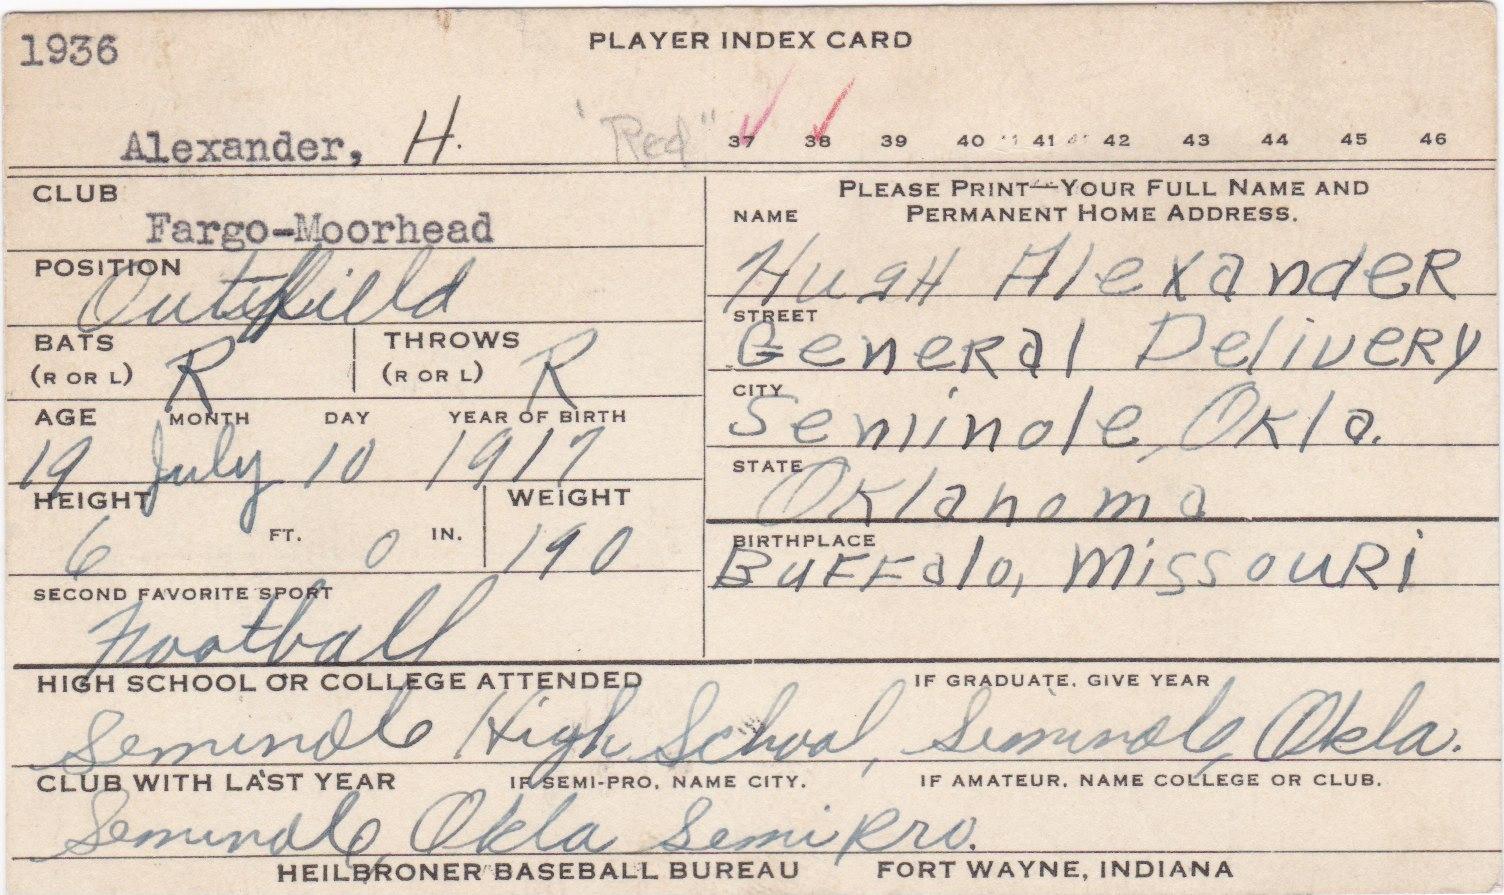 1936
PLAYER INDEX CARD
Alexander, H. "Red" 37 38 39 40 41 42 43 44 45 46
CLUB
Fargo-Moorhead
POSITION
Outfield
BATS THROWS
(R OR L) R (R OR L) R
AGE MONTH DAY YEAR OF BIRTH
19 July 10 1917
HEIGHT WEIGHT
6 FT. 0 IN. 190
SECOND FAVORITE SPORT
Football
PLEASE PRINT—YOUR FULL NAME AND
NAME PERMANENT HOME ADDRESS.
Hugh Alexander
STREET
General Delivery
CITY
Seminole, Okla.
STATE
Oklahoma
BIRTHPLACE
Buffalo, Missouri
HIGH SCHOOL OR COLLEGE ATTENDED IF GRADUATE, GIVE YEAR
Seminole High School, Seminole, Okla.
CLUB WITH LAST YEAR IF SEMI-PRO, NAME CITY. IF AMATEUR, NAME COLLEGE OR CLUB.
Seminole, Okla Semi Pro.
HEILBRONER BASEBALL BUREAU FORT WAYNE, INDIANA